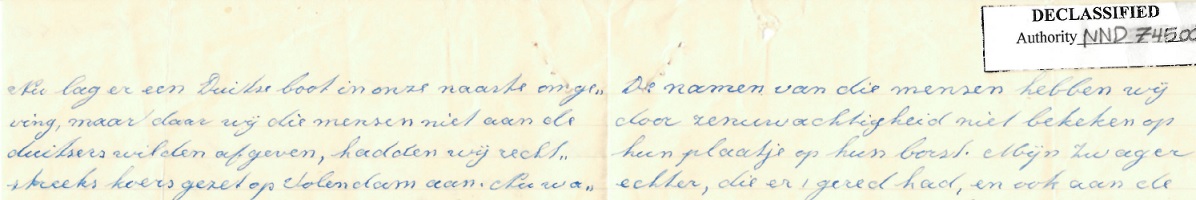 Nu lag er een Duitse boot in onze naaste omge„
ving, maar daar wij die mensen niet aan de
duitsers wilden afgeven, hadden wij recht„
streeks koers gezet op Volendam aan. Nu wa„
DECLASSIFIED
Authority NND 74500
De namen van die mensen hebben wij
door zenuwachtigheid niet bekeken op
hun plaatje op hun borst. Mijn zwager
echter, die er 1 gered had, en ook aan de